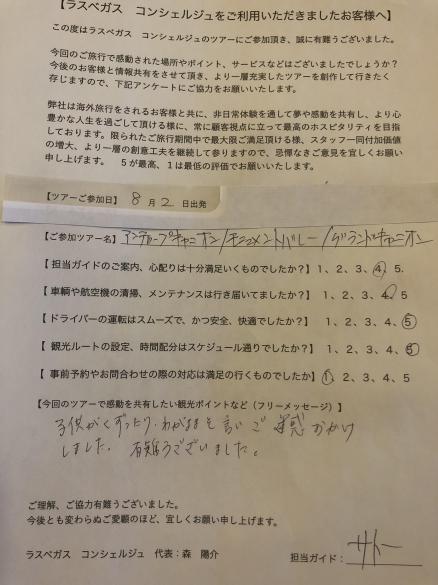 【ラスベガス　コンシェルジュをご利用いただきましたお客様へ】
この度はラスベガス　コンシェルジュのツアーにご参加頂き、誠に有難うございました。
今回のご旅行で感動された場所やポイント、サービスなどはございましたでしょうか？
今後のお客様と情報共有をさせて頂き、より一層充実したツアーを創作して行きたく
存じますので、下記アンケートにご協力をお願いいたします。
弊社は海外旅行をされるお客様と共に、非日常体験を通して夢や感動を共有し、より心
豊かな人生を過ごして頂ける様に、常に顧客視点に立って最高のホスピタリティを目指
しております。限られたご旅行期間中で最大限ご満足頂ける様、スタッフ一同付加価値
の増大、より一層の創意工夫を継続して参りますので、忌憚なきご意見を宜しくお願い
申し上げます。　5が最高、1は最低の評価でお願いいたします。
【ツアーご参加日】 8月 2 日出発
【ご参加ツアー名】アンテロープキャニオン/モニュメントバレー/グランドキャニオン
【担当ガイドのご案内、心配りは十分満足いくものでしたか？】1、2、3、4、5.
【車輌や航空機の清掃、メンテナンスは行き届いてましたか？】1、2、3、4、5
【ドライバーの運転はスムーズで、かつ安全、快適でしたか？】1、2、3、4、5
【 観光ルートの設定、時間配分はスケジュール通りでしたか？】1、2、3、4、5
【 事前予約やお問合わせの際の対応は満足の行くものでしたか】1、2、3、4、5
【今回のツアーで感動を共有したい観光ポイントなど（フリーメッセージ）】
子供がぐずったり、わがままを言いご迷惑おかけ
しました。有難うございました。
ご理解、ご協力有難うございました。
今後とも変わらぬご愛顧のほど、宜しくお願い申し上げます。
ラスベガス　コンシェルジュ　代表：森　陽介
担当ガイド：サトー